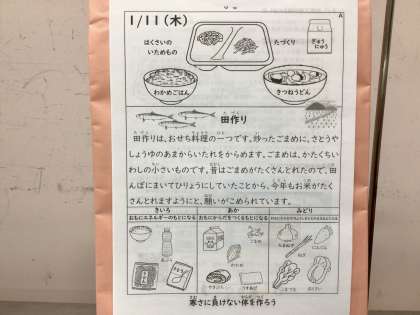 1/11(木)
A
はくさいの
いためもの
たづくり
ぎゅう
にゅう
わかめごはん
きつねうどん
田作り
田作りは、おせち料理の一つです。炒ったごまめに、さとうや
しょうゆのあまからいたれをからめます。ごまめは、かたくちい
わしの小さいものです。昔はごまめがたくさんとれたので、田
んぼにまいてひりょうにしていたことから、今年もお米がたく
さんとれますようにと、願いがこめられています。
きいろ
あか
みどり
おもにエネルギーのもとになる
おもにからだをつくるもとになる
寒さに負けない体を作ろう